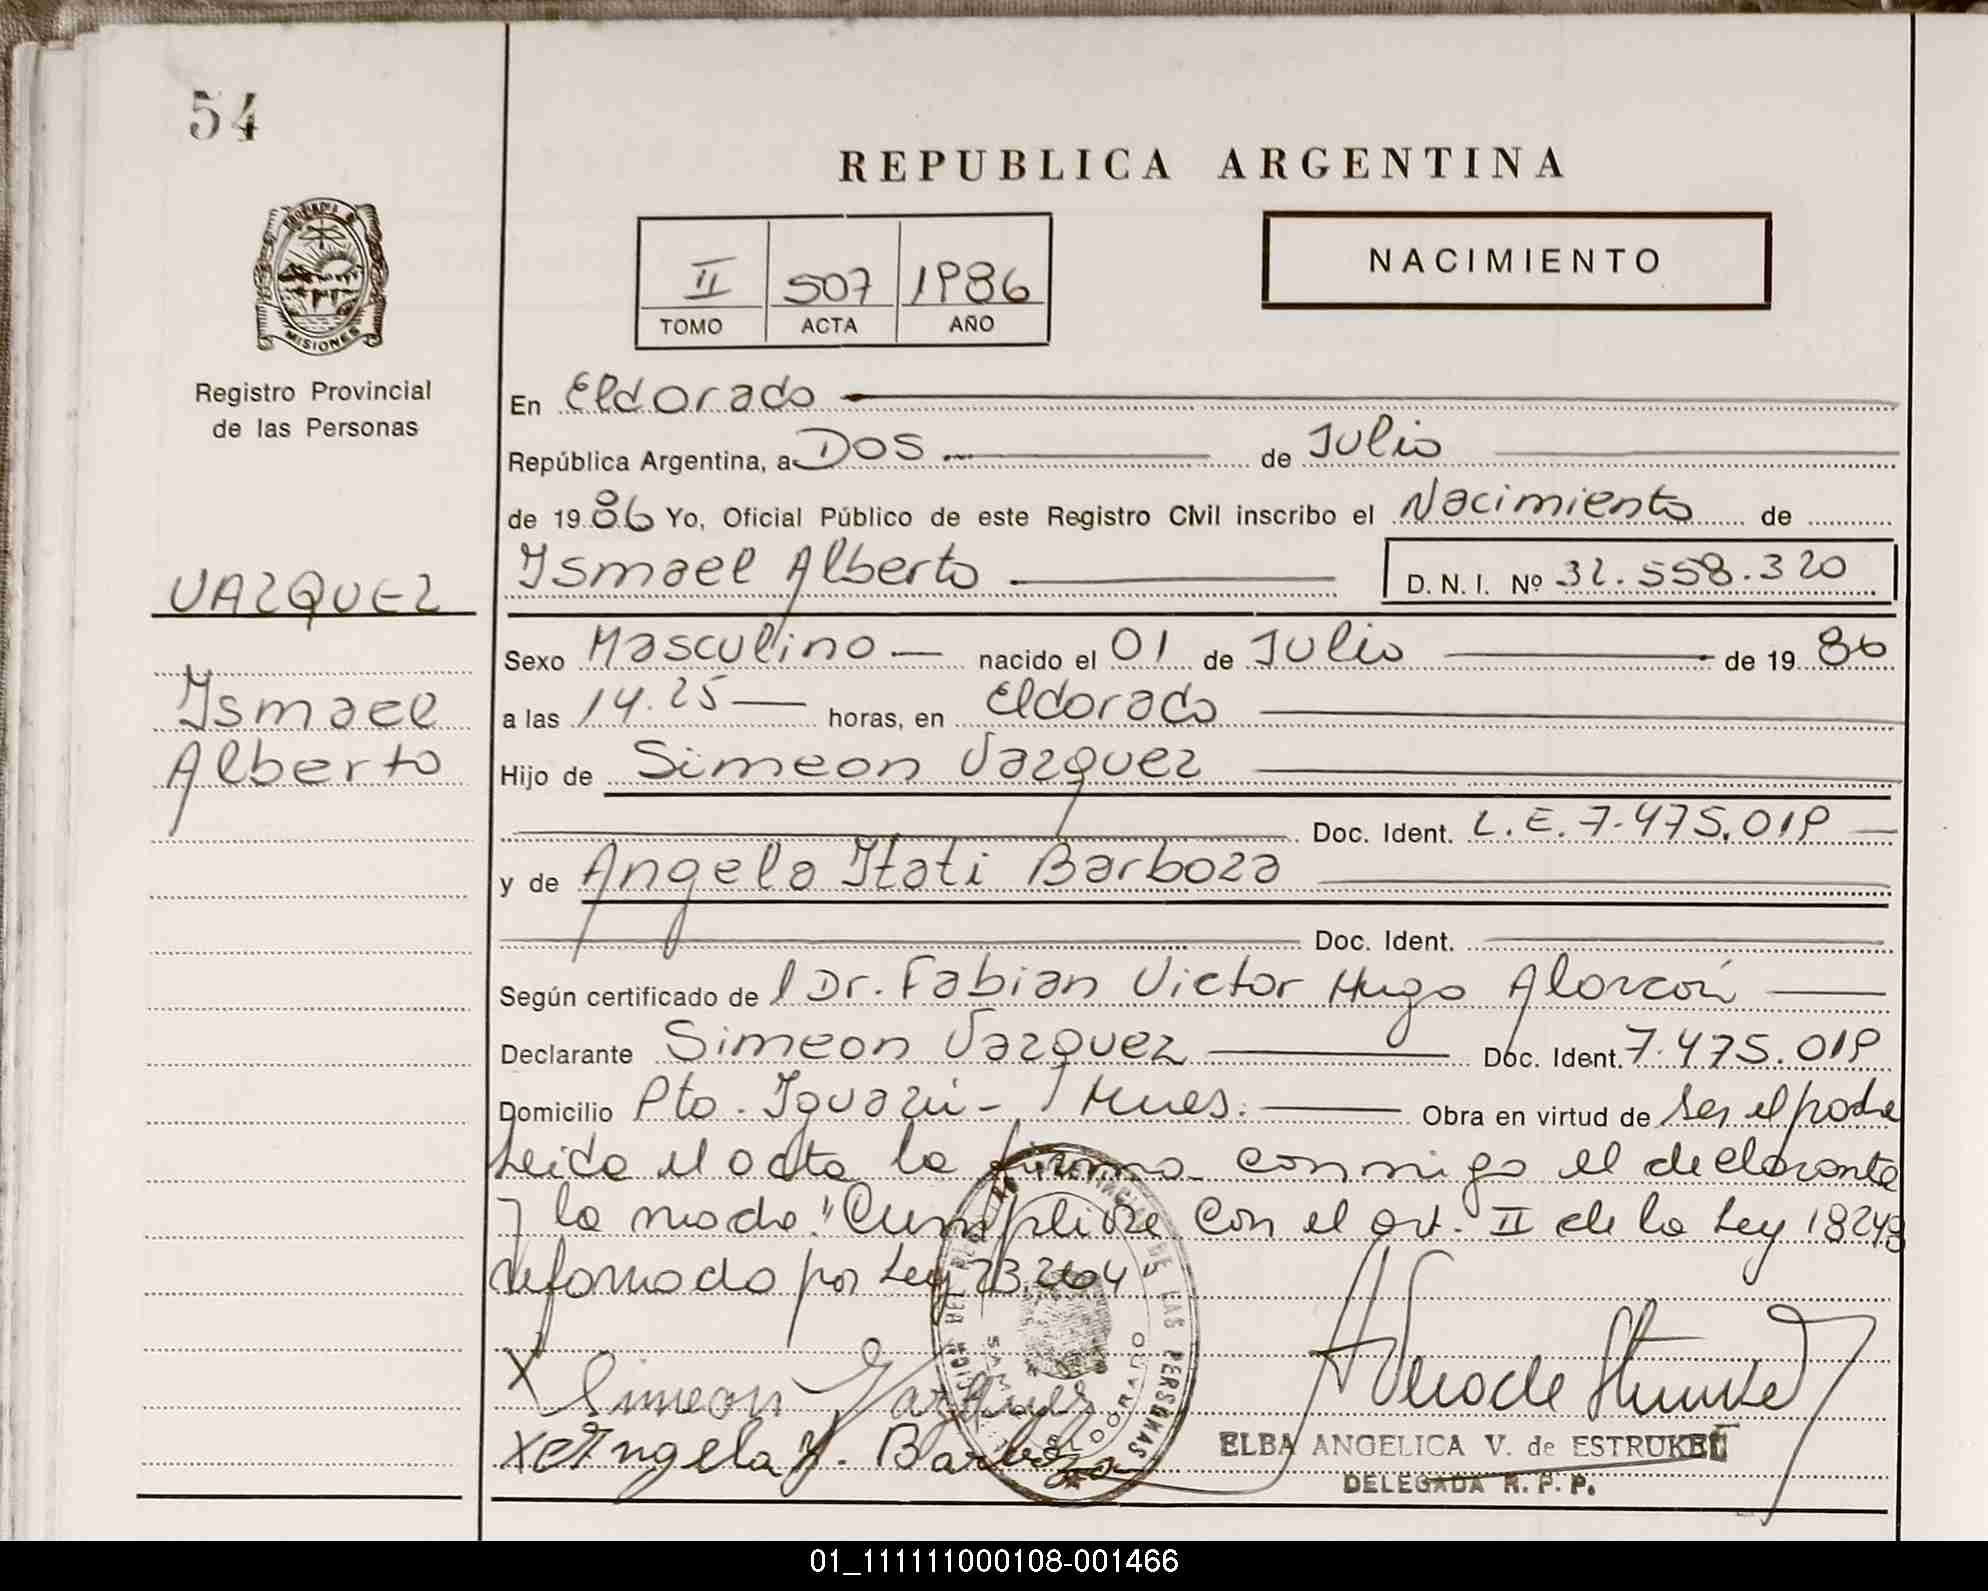 54
REPUBLICA ARGENTINA
II 507 1986
TOMO ACTA AÑO
NACIMIENTO
MISIONES
Registro Provincial
de las Personas
En Eldorado
República Argentina, a DOS de Julio
de 1986 Yo, Oficial Público de este Registro Civil inscribo el Nacimiento de
Ismael Alberto D. N. I. Nº 32.558.320
VAZQUEZ
Ismael
Alberto
Sexo Masculino nacido el 01 de Julio de 1986
a las 14.25 horas, en Eldorado
Hijo de Simeon Vazquez
Doc. Ident. L.E. 7.475.019
y de Angela Itati Barboza
Doc. Ident.
Según certificado de Dr. Fabian Victor Hugo Alarcón
Declarante Simeon Vazquez Doc. Ident. 7.475.019
Domicilio Pto. Iguazú - Mnes. Obra en virtud de ser el padre
Leida el acta la firma conmigo el declarante
y la madre "Cumplidse con el art. II de la Ley 18248
reformado por Ley 23.264"
X Simeon Vazquez
X Angela Y. Barboza
DE LAS PERSONAS
ELDORADO
ELBA ANGELICA V. de ESTRUKEL
DELEGADA R. P. P.
01_111111000108-001466